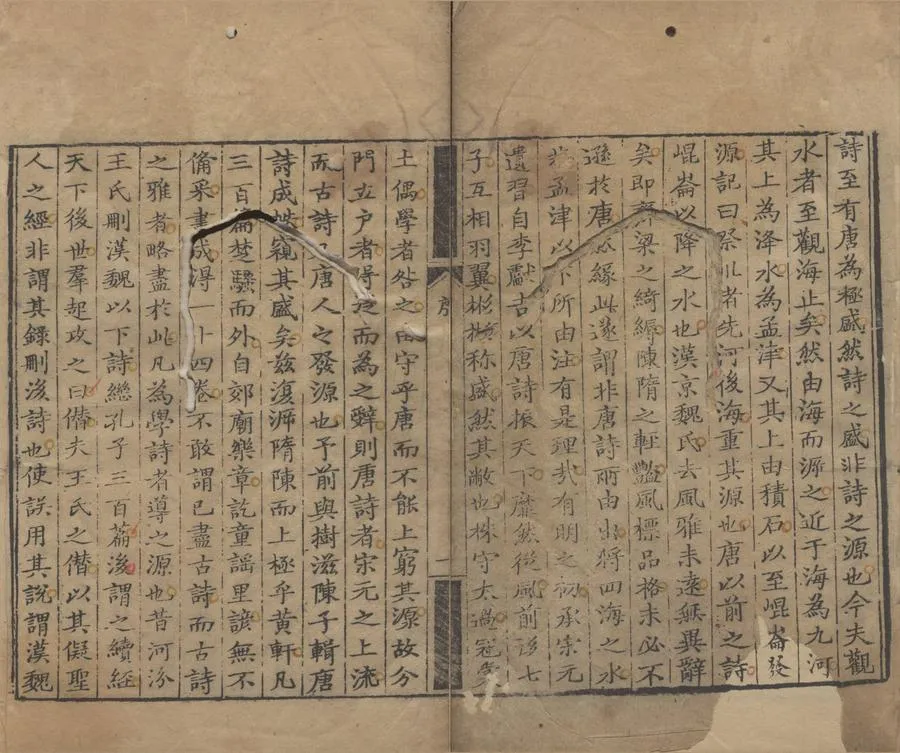 詩至有唐為極盛然詩之盛非詩之源也今夫觀
水者至觀海止矣然由海而泝之近于海為九河
其上為洚水為孟津又其上由積石以至崐崙發
源記曰祭川者先河後海重其源也唐以前之詩
崐崙以降之水也漢京魏氏去風雅未遠無異辭
矣即齊梁之綺縟陳隋之輕豔風標品格未必不
遜於唐然緣此遂謂非唐詩所由出將四海之水
非孟津以下所由注有是理哉有明之初承宋元
遺習自李獻吉以唐詩振天下靡然從風前後七
子互相羽翼彬彬稱盛然其敝也株守太過冠裳
序
二
土偶學者咎之由守乎唐而不能上窮其源故分
門立户者得從而為之辭則唐詩者宋元之上流
而古詩又唐人之發源也予前與樹滋陳子輯唐
詩成帙窺其盛矣茲復泝隋陳而上極乎黃軒凡
三百篇楚騷而外自郊廟樂章訖童謡里諺無不
備采書成得一十四卷不敢謂已盡古詩而古詩
之雅者略盡於此凡為學詩者導之源也昔河汾
王氏刪漢魏以下詩繼孔子三百篇後謂之續經
天下後世羣起攻之曰僭夫王氏之僭以其儗聖
人之經非謂其録刪後詩也使誤用其說謂漢魏